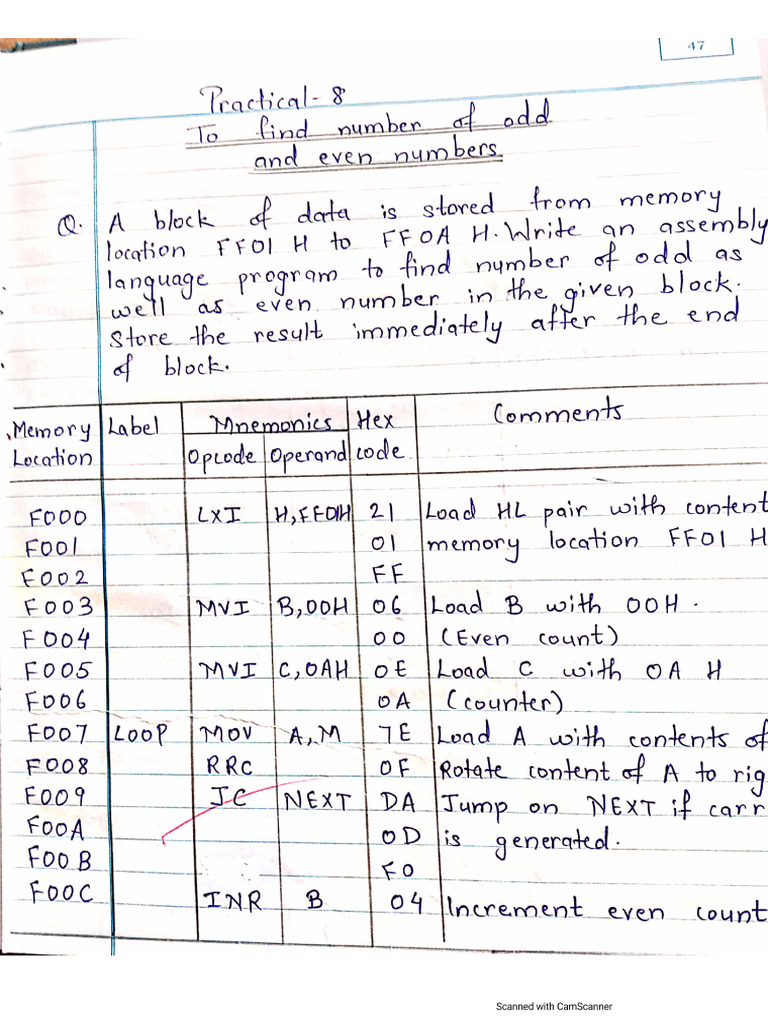 47
Practical-8
To find number of odd
and even numbers
Q. A block of data is stored from memory
location FF01 H to FF0A H. Write an assembly
language program to find number of odd as
well as even number in the given block.
Store the result immediately after the end
of block.
Memory Location Label Mnemonics Hex code Comments
Opcode Operand
F000 LXI H,FF01H 21 Load HL pair with content
F001 01 memory location FF01 H
F002 FF
F003 MVI B,00H 06 Load B with 00H.
F004 00 (Even count)
F005 MVI C,0AH 0E Load C with 0A H
F006 0A (counter)
F007 LOOP MOV A,M 7E Load A with contents of
F008 RRC 0F Rotate content of A to rig
F009 JC NEXT DA Jump on NEXT if carr
F00A 0D is generated.
F00B F0
F00C INR B 04 Increment even count
Scanned with CamScanner